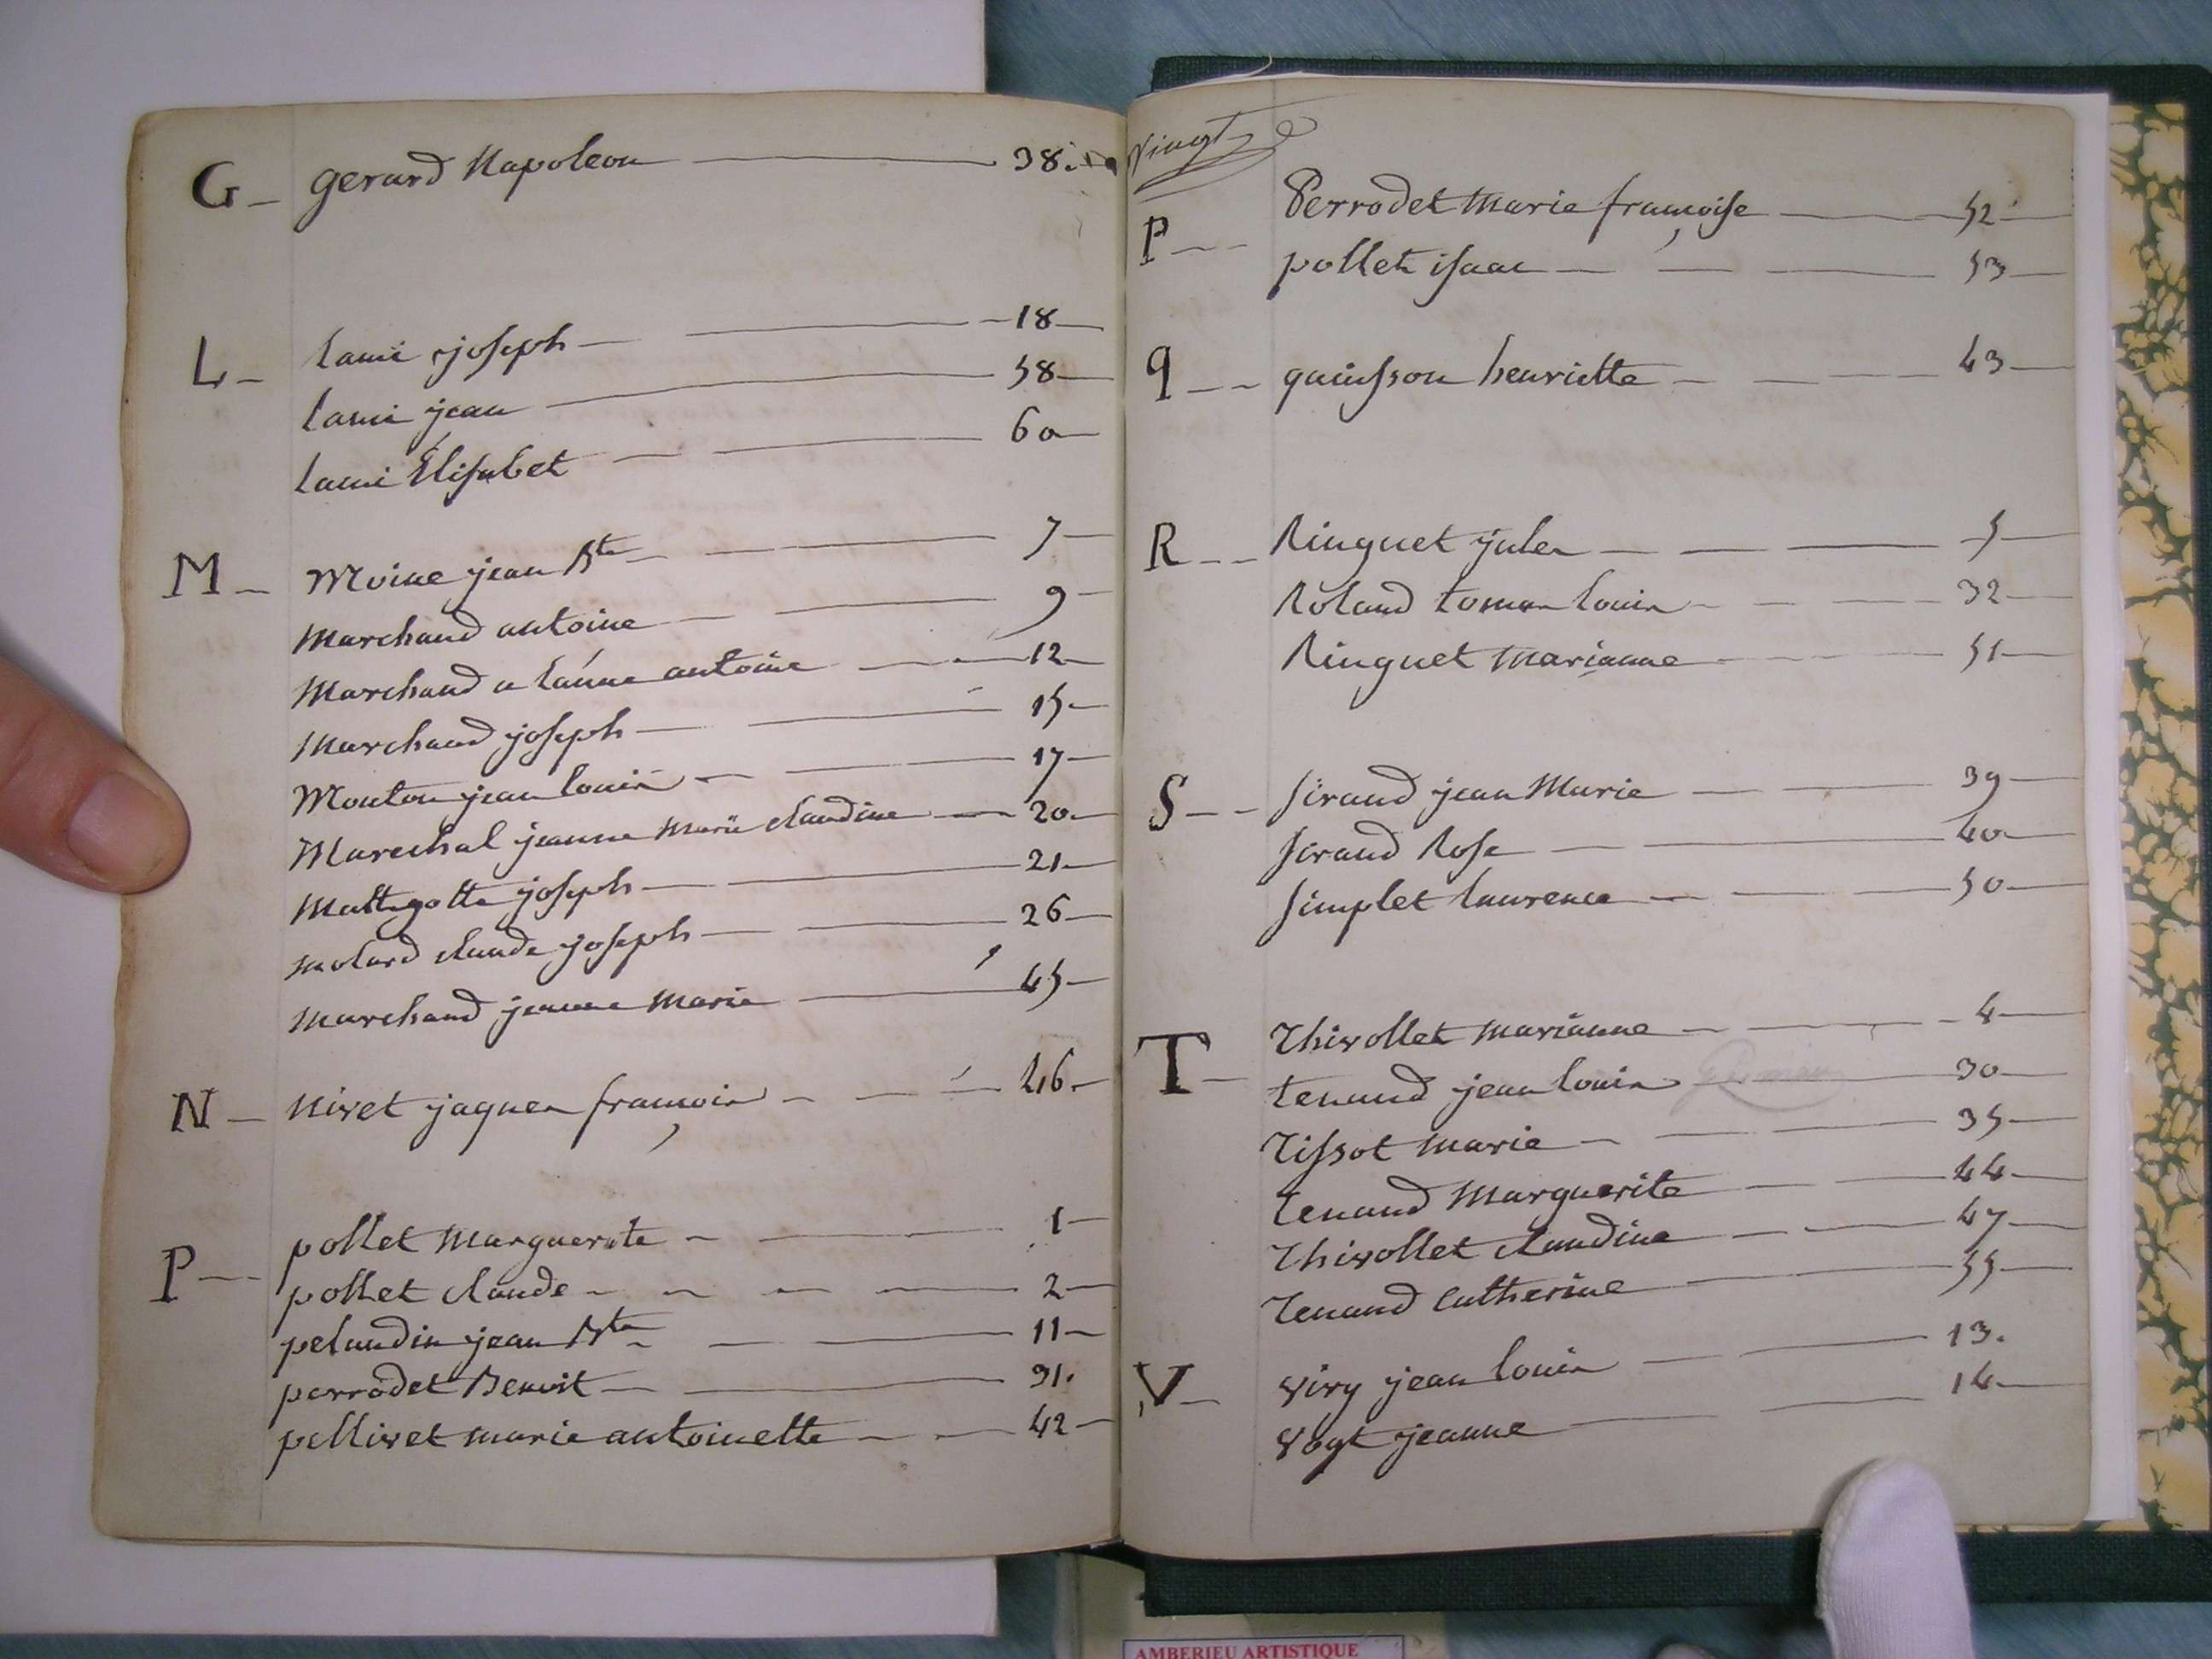 G — gerard Napoleon — 38.
L — lami joseph — 18
lami jean — 58
lami Élisabet — 60
M — Moine jean Bte — 7
Marchand antoine — 9
Marchand a lainne antoine — 12
Marchand joseph — 15
Mouton jean louis — 17
Marechal jeanne Marie claudine — 20
Mattegotte joseph — 21
molard claude joseph — 26
Marchand jeanne Marie — 45
N — Nivet jaques françois — 46
P — pollet Marguerite — 1
pollet claude — 2
pelaudin jean Bte — 11
perrodet Benoit — 31.
pellivet marie antoinette — 42
Vingt
P — Perrodet Marie françoise — 52
pollet isaac — 53
q — quinsson henriette — 43
R — Ringuet jules — 5
Roland tomas louis — 32
Ringuet Marianne — 51
S — Sirand jean Marie — 39
Sirand Rose — 40
Simplet laurence — 50
T — Thivollet marianne — 4
tenand jean louis — 30
Tissot marie — 35
Tenand Marguerite — 44
Thivollet claudine — 47
Tenand Catherine — 55
V — Viry jean louis — 13.
Vogt jeanne — 14
AMBERIEU ARTISTIQUE